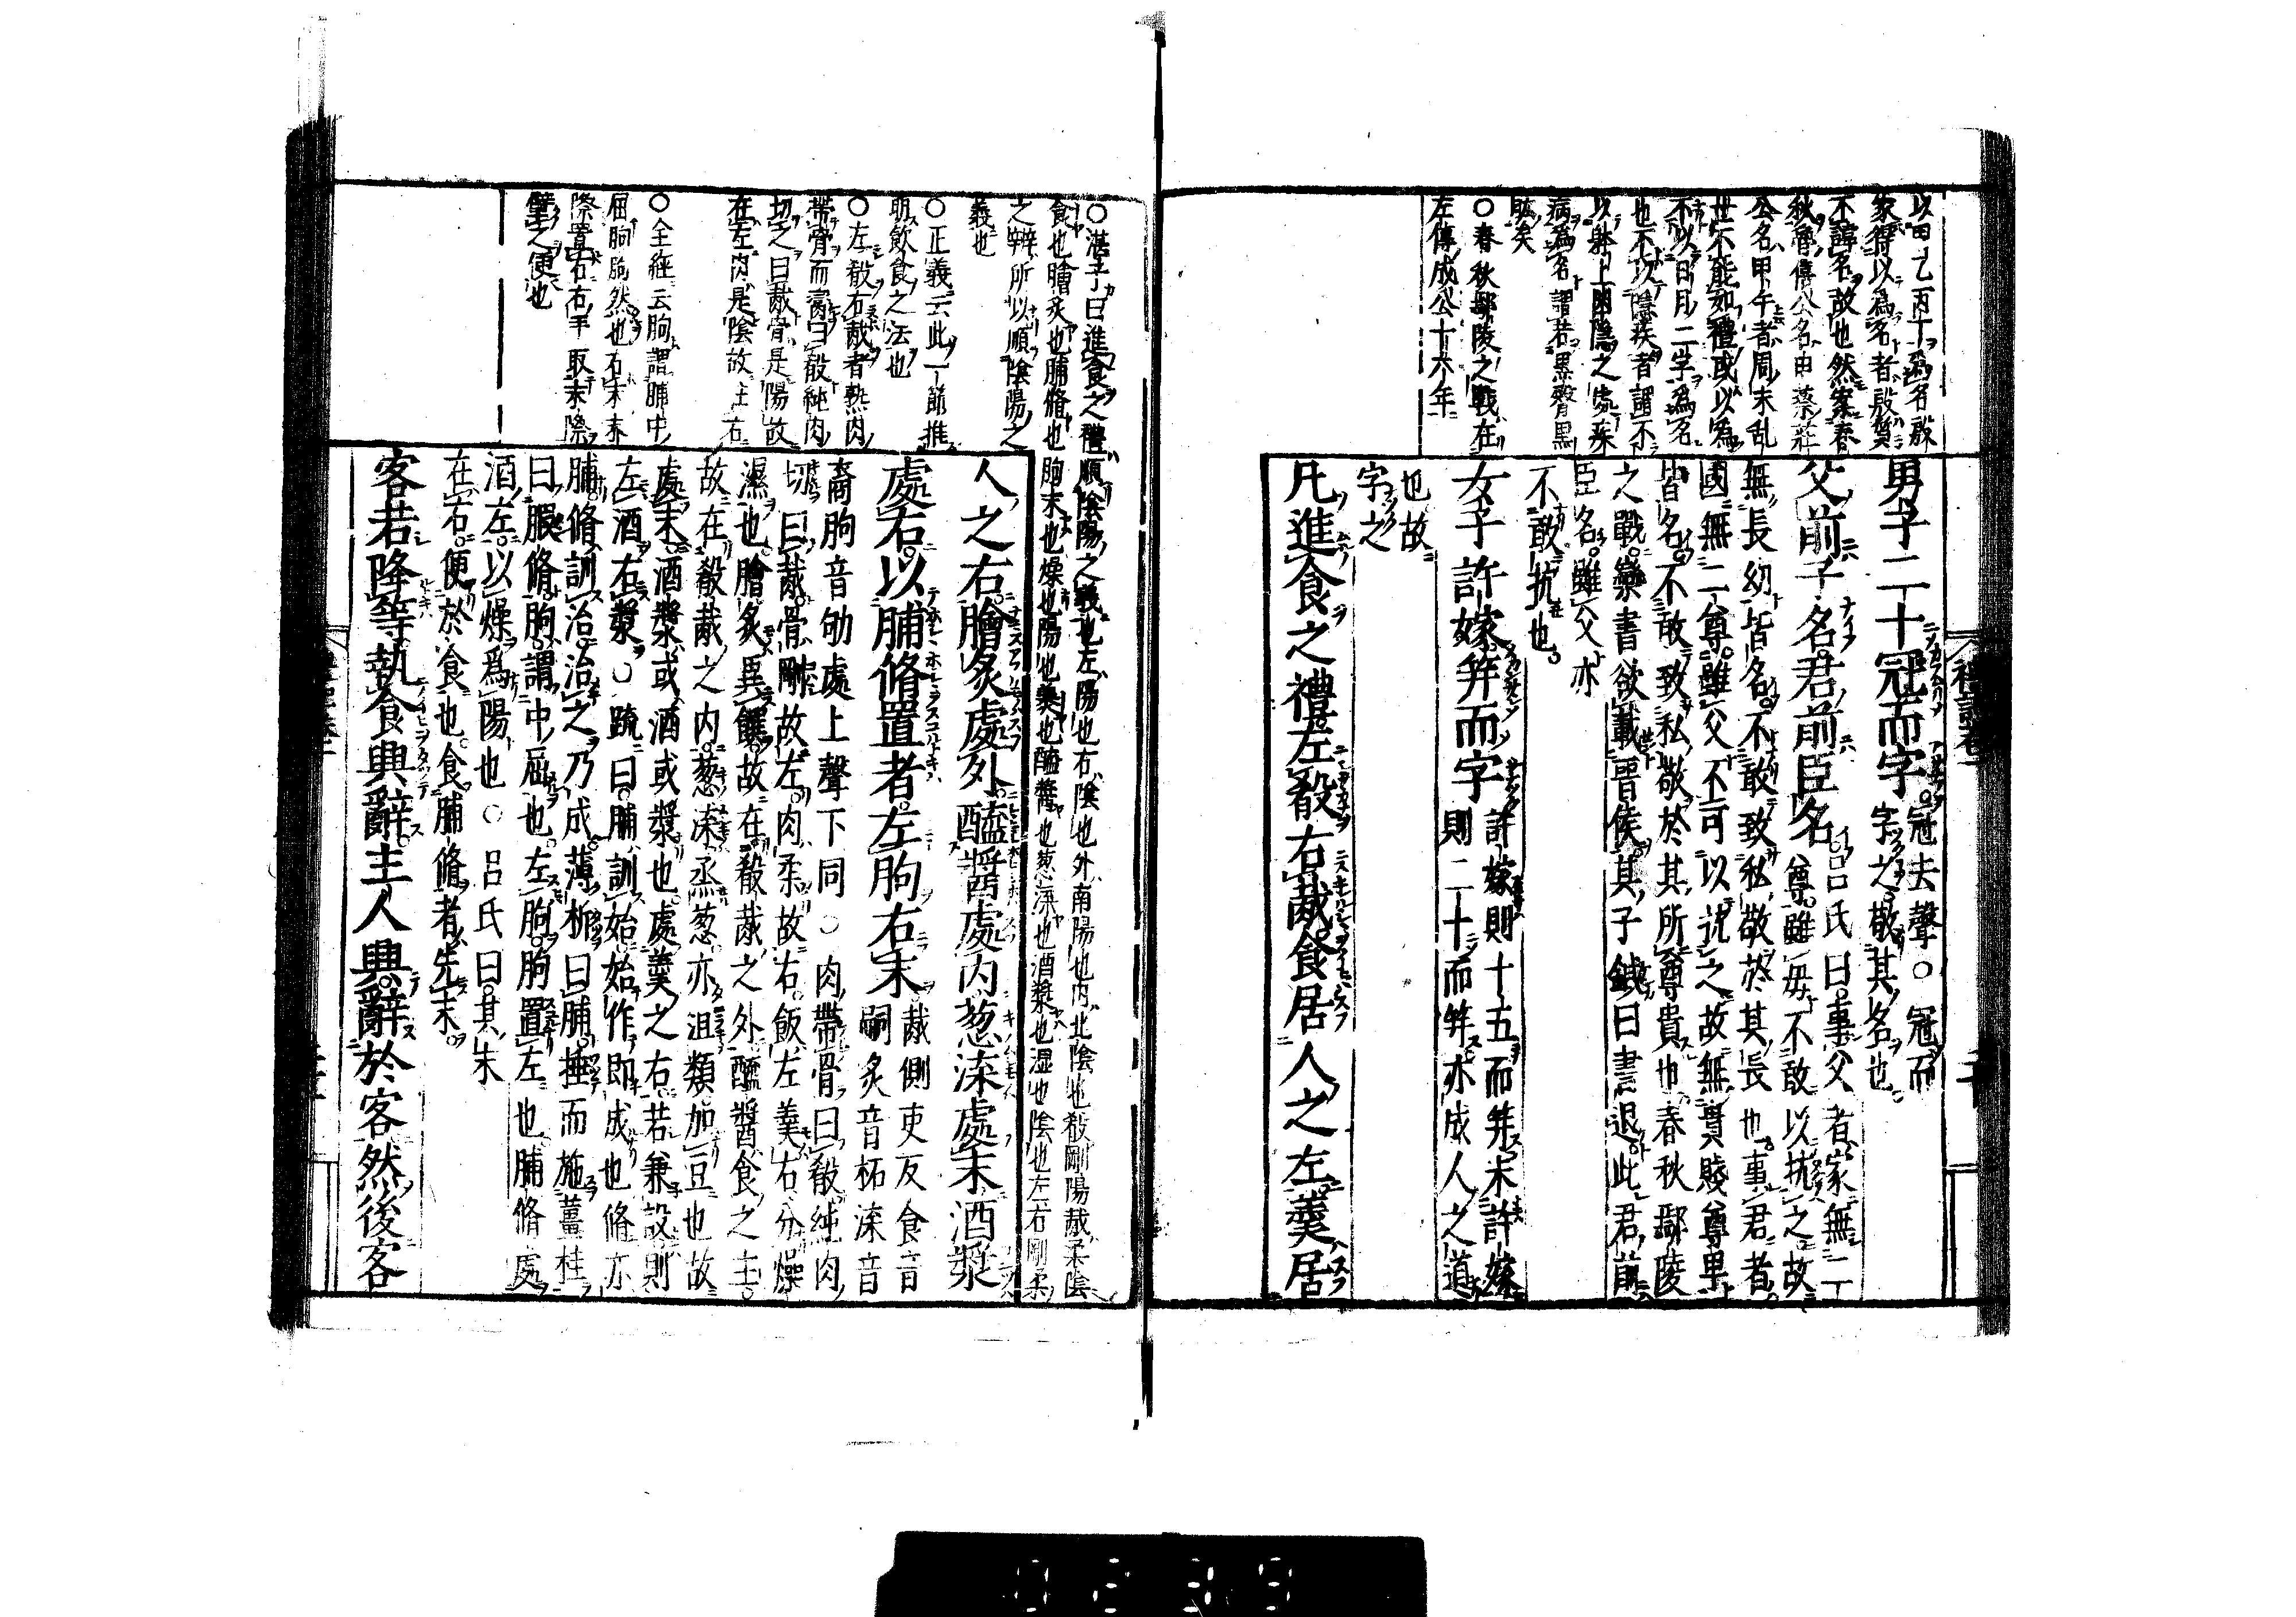 以甲乙丙丁爲名殷
家得以爲名者殷質
不諱名故也然案春
秋魯僖公名申蔡莊
公名甲午者周末乱
世不能如禮或以爲
不以日月二字爲名
也不以隱疾者謂不
以躰上幽隱之處疾
病爲名謂若黑臀黑
肱矣
○春秋鄢陵之戰在
左傳成公十六年
男子二十冠而字
冠去聲○冠而
字之敬其名也
父前子名君前臣名
呂氏曰事父者家無二
尊雖母不敢以抗之故
無長幼皆名不敢致私敬於其長也事君者
國無二尊雖父不可以抗之故無貴賤尊卑
皆名不敢致私敬於其所尊貴也春秋鄢陵
之戰欒書欲載晋侯其子鍼曰書退此君前
臣名雖父亦
不敢抗也
女子許嫁笄而字
許嫁則十五而笄未許嫁
則二十而笄亦成人之道
也故
字之
凡進食之禮左殽右胾食居人之左羹居
○湛子曰進食之禮順陰陽之義也左陽也右陰也外南陽也内北陰也殽剛陽胾柔陰
食也膾炙也脯脩也胊末也燥也陽也羹也醯醬也葱渫也酒漿也湿也陰也左右剛柔
之辨所以順陰陽之
義也
○正義云此一節推
明飲食之法也
○左殽右胾者熟肉
帶骨而臠曰殽純肉
切之曰胾骨是陽故
在左肉是陰故在右
○全經云胊謂脯中
屈胊胊然也右末末
際置右右手取末際
擘之便也
人之右膾炙處外醯醬處内葱渫處末酒漿
處右以脯脩置者左胊右末
胾側吏反食音
嗣炙音柘渫音
裔胊音劬處上聲下同○肉帶骨曰殽純肉
切曰胾骨剛故左肉柔故右飯左羹右分燥
濕也膾炙異饌故在殽胾之外醯醬食之主
故在殽胾之内葱渫烝葱亦沮類加豆也故
處末酒漿或酒或漿也處羹之右若兼設則
左酒右漿○疏曰脯訓始始作即成也脩亦
脯脩訓治治之乃成薄析曰脯捶而施薑桂
曰腶脩胊謂中屈也左胊胊置左也脯脩處
酒左以燥爲陽也○呂氏曰其末
在右便於食也食脯脩者先末
客若降等執食興辭主人興辭於客然後客